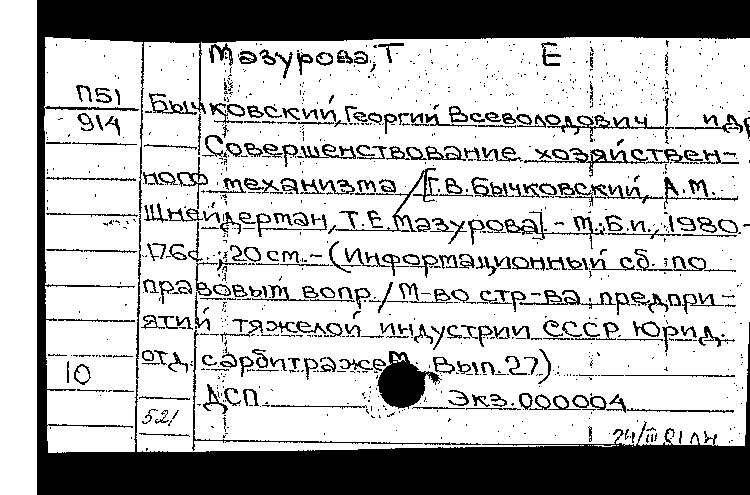 Мазурова, Т Е
П51
914
Бычковский, Георгий Всеволодович и др
Совершенствование хозяйствен-
ного механизма / [Г.В. Бычковский, А.М.
Шнейдерман, Т.Е. Мазурова] - М.: Б.и., 1980.-
176с.; 20 см. - (Информационный сб. по
правовым вопр. / М-во стр-ва предпри-
ятий тяжелой индустрии СССР. Юрид.
отд. с арбитражем. Вып. 27)
10
ДСП. Экз. 000004
521
24/III 81